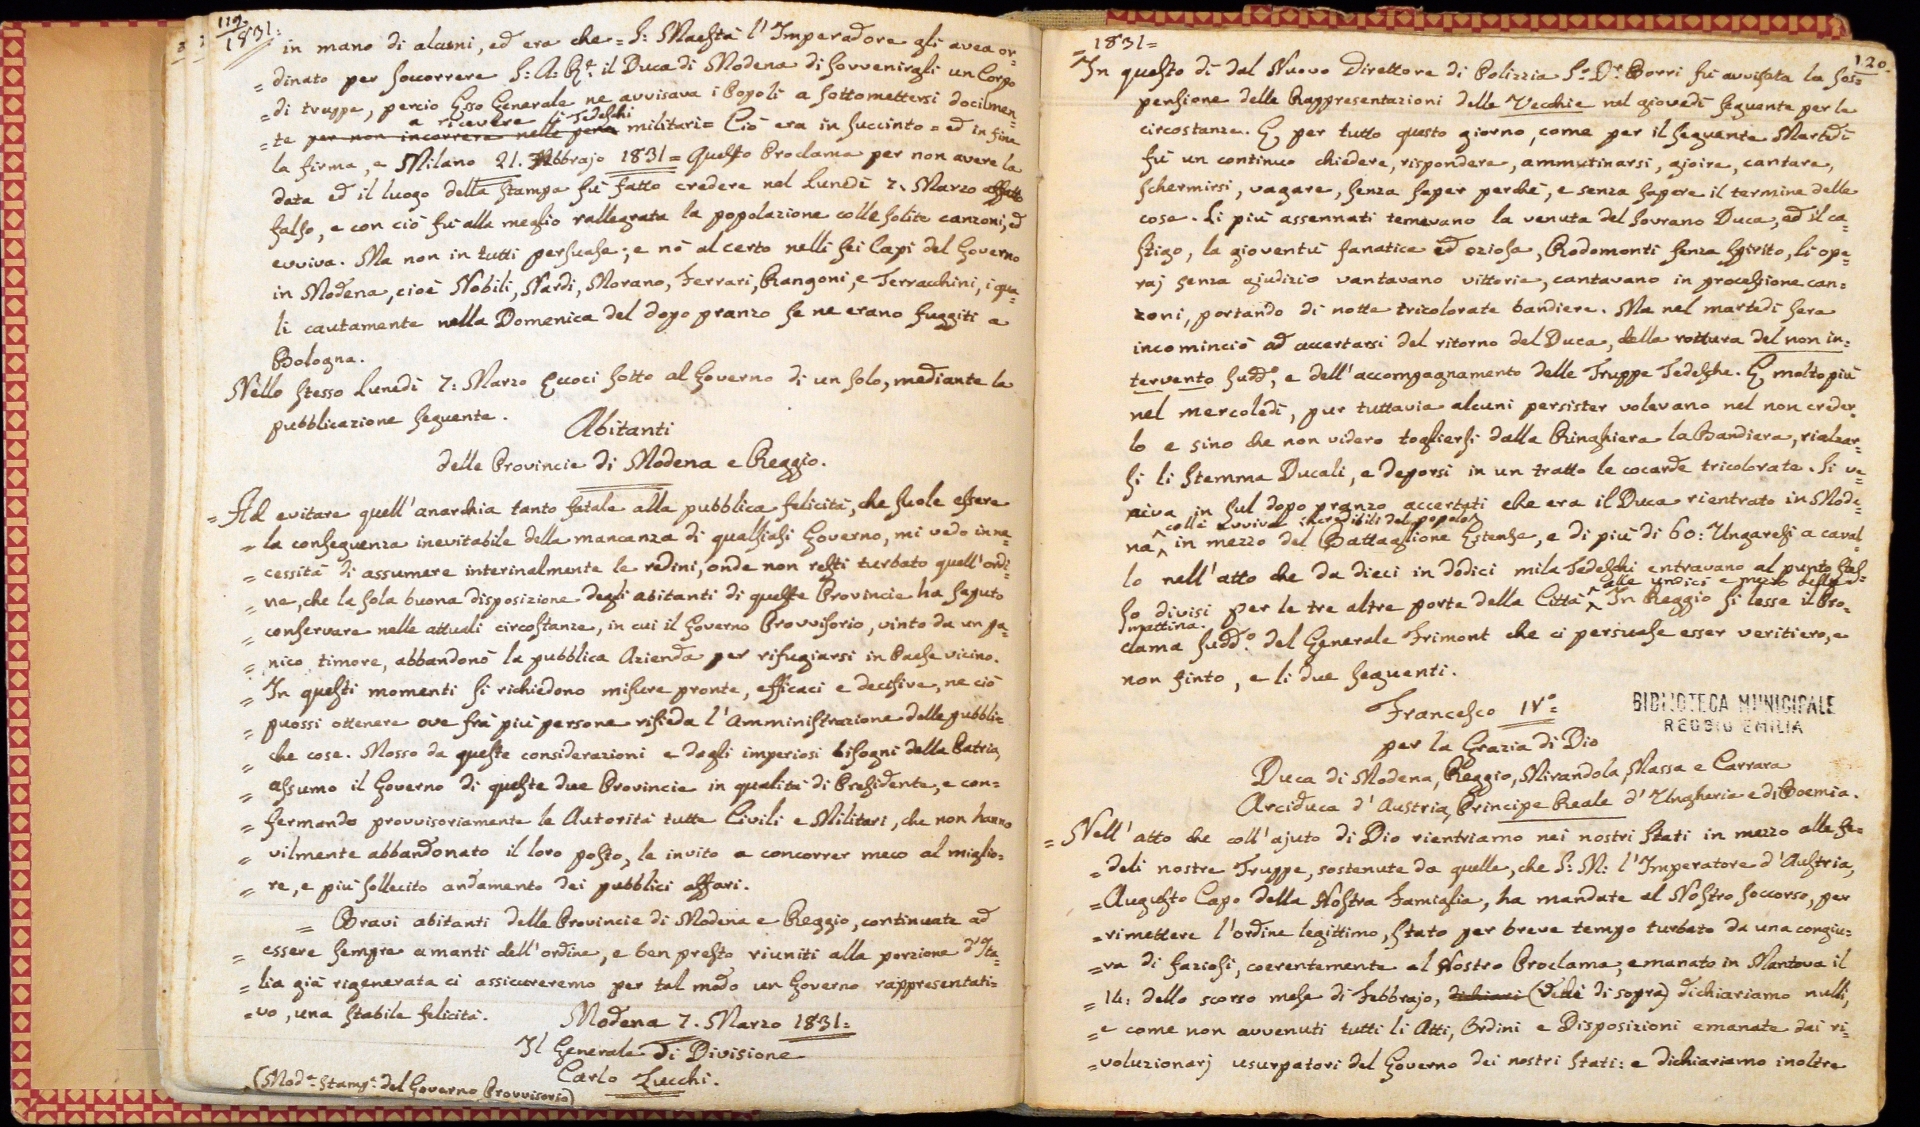 119.
1831.
in mano di alcuni, ed era che = S: Maestà l'Imperadore gli avea or-
= dinato per soccorrere S: A: R.e il Duca di Modena di sovvenirgli un Corpo
= di truppe, perciò Esso Generale ne avvisava i Popoli a sottomettersi docilmen-
a ricevere li Tedeschi
= te per non incorrere nelle pene militari = Ciò era in succinto = ed in fine
la firma, e Milano 21. Febbrajo 1831 = Questo Proclama per non avere la
data ed il luogo della stampa fù fatto credere nel Lunedì 7. Marzo affatto
falso, e con ciò fù alla meglio rallegrata la popolazione colle solite canzoni, ed
evviva. Ma non in tutti persuase; e nò al certo nelli sei Capi del Governo
in Modena, cioè Nobili, Nardi, Morano, Ferrari, Rangoni, e Terracchini, i qua-
li cautamente nella Domenica del dopo pranzo se ne erano fuggiti a
Bologna.
Nello stesso Lunedì 7: Marzo Eccoci sotto al Governo di un solo, mediante la
pubblicazione seguente.
Abitanti
delle Provincie di Modena e Reggio.
= Ad evitare quell'anarchia tanto fatale alla pubblica felicità, che suole essere
= la conseguenza inevitabile della mancanza di qualsiasi Governo, mi vedo in ne-
= cessità di assumere interinalmente le redini, onde non resti turbato quell'ordi-
= ne, che la sola buona disposizione degli abitanti di queste Provincie ha saputo
= conservare nelle attuali circostanze, in cui il Governo Provvisorio, vinto da un pa-
= nico timore, abbandonò la pubblica Azienda per rifugiarsi in Paese vicino.
= In questi momenti si richiedono misure pronte, efficaci e decisive, ne ciò
= puossi ottenere ove frà più persone risieda l'Amministrazione delle pubbli-
= che cose. Mosso da queste considerazioni e dagli imperiosi bisogni della Patria,
= assumo il Governo di queste due Provincie in qualità di Presidente, e con-
= fermando provvisoriamente le Autorità tutte Civili e Militari, che non hanno
= vilmente abbandonato il loro posto, le invito a concorrer meco al miglio-
= re, e più sollecito andamento dei pubblici affari.
= Bravi abitanti delle Provincie di Modena e Reggio, continuate ad
= essere sempre amanti dell'ordine, e ben presto riuniti alla porzione d'Ita-
= lia già rigenerata ci assicureremo per tal modo un Governo rappresentati-
= vo, una stabile felicità.
Modena 7. Marzo 1831.
Il Generale di Divisione
Carlo Zucchi.
(Mod.a Stamp.a del Governo Provvisorio)
= 1831 =
120.
In questo dì dal Nuovo Direttore di Polizzia S.r D.r Borri fù avvisata la sos-
pensione delle Rappresentazioni delle Vecchie nel giovedì seguente per le
circostanze. E, per tutto questo giorno, come per il seguente Martedì
fù un continuo chiedere, rispondere, ammutinarsi, gioire, cantare,
schermirsi, vagare, senza saper perchè, e senza sapere il termine delle
cose. Li più assennati temevano la venuta del Sovrano Duca, ed il ca-
stigo, la gioventù fanatica ed oziosa, Rodomonti senza spirito, li ope-
raj senza giudizio vantavano vittorie, cantavano in processione can-
zoni, portando di notte tricolorate bandiere. Ma nel martedì sera
incominciò ad accertarsi del ritorno del Duca, della rottura del non in-
tervento sudd.o, e dell'accompagnamento delle Truppe Tedesche. E, molto più
nel mercoledì, pur tuttavia alcuni persister volevano nel non creder-
lo e sino che non videro togliersi dalla Ringhiera la Bandiera, rialzar-
si li Stemma Ducali, e deporsi in un tratto le cocarde tricolorate. Si ve-
niva in sul dopo pranzo accertati che era il Duca rientrato in Mode-
colli evviva incredibili del popolo
na, in mezzo del Battaglione Estense, e di più di 60: Ungaresi a caval-
lo nell'atto che da dieci in dodici mila Tedeschi entravano al punto stes-
alle undici e mezzo della
so divisi per le tre altre porte della Città. In Reggio si lesse il Pro-
mattina.
clama sudd.o del Generale Frimont che ci persuase esser veritiero, e
non finto, e li due seguenti.
Francesco IV.o
BIBLIOTECA MUNICIPALE
REGGIO EMILIA
per la Grazia di Dio
Duca di Modena, Reggio, Mirandola, Massa e Carrara
Arciduca d'Austria, Principe Reale d'Ungheria e di Boemia.
= Nell'atto che coll'ajuto di Dio rientriamo nei nostri Stati in mezzo alle fe-
= deli nostre Truppe, sostenute da quelle, che S: M: l'Imperatore d'Austria,
= Augusto Capo della Nostra Famiglia, ha mandate al Nostro soccorso, per
= rimettere l'ordine legittimo, stato per breve tempo turbato da una congiu-
= ra di faziosi, coerentemente al Nostro Proclama, emanato in Mantova il
= 14: dello scorso mese di Febbrajo, dichiari (Vedi di sopra) dichiariamo nulli,
= e come non avvenuti tutti li Atti, Ordini e Disposizioni emanate dai ri-
= voluzionarj usurpatori del Governo dei nostri Stati: e dichiariamo inoltre